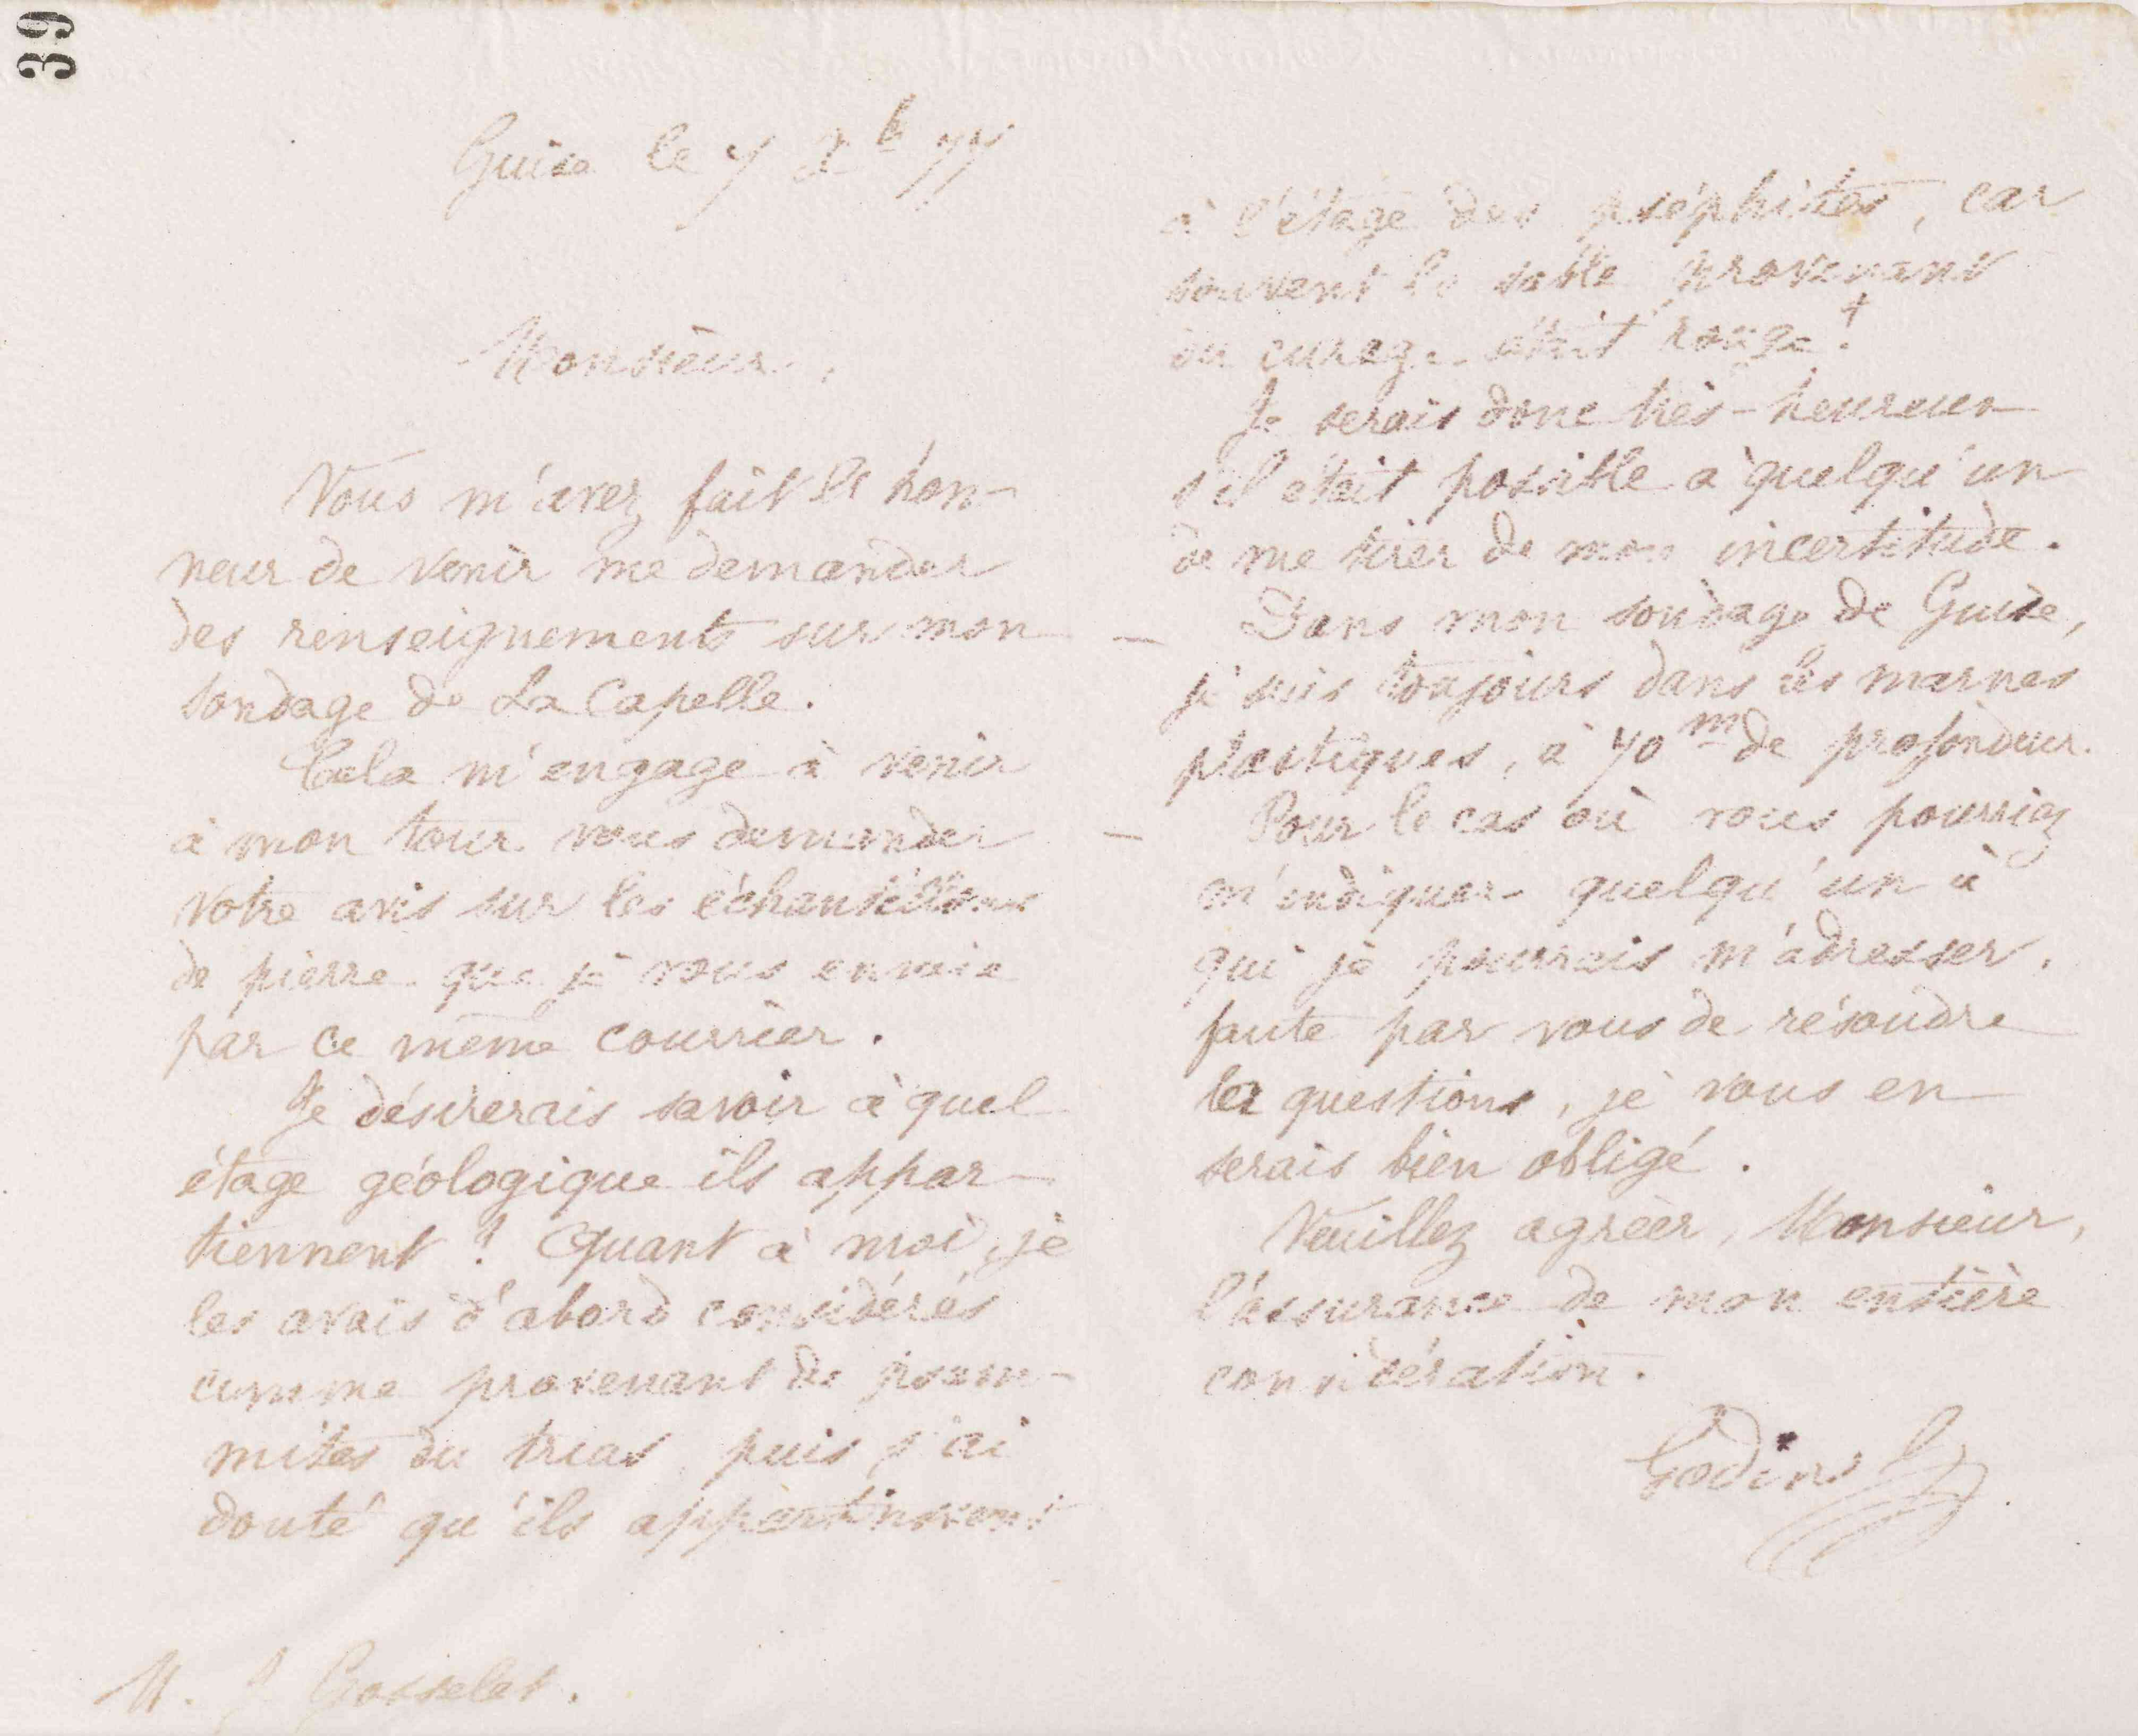 39
Guise le 7 Xb 77
Monsieur,
Vous m'avez fait l'hon-
neur de venir me demander
des renseignements sur mon
sondage de La Capelle.
Cela m'engage à venir
à mon tour vous demander
votre avis sur les échantillons
de pierre que je vous envoie
par ce même courrier.
Je désirerais savoir à quel
étage géologique ils appar-
tiennent ? Quant à moi, je
les avais d'abord considérés
comme provenant de psam-
mites du trias, puis j'ai
douté qu'ils appartinssent
M. J. Gosselet.
à l'étage des pséphites, car
souvent le sable provenant
du curage était rouge.
Je serais donc très-heureux
s'il était possible à quelqu'un
de me tirer de mon incertitude.
— Dans mon sondage de Guise,
je suis toujours dans les marnes
plastiques, à 70 m de profondeur.
— Pour le cas où vous pourriez
m'indiquer quelqu'un à
qui je pourrais m'adresser,
faute par vous de résoudre
les questions, je vous en
serais bien obligé.
Veuillez agréer, Monsieur,
l'assurance de mon entière
considération.
Godin